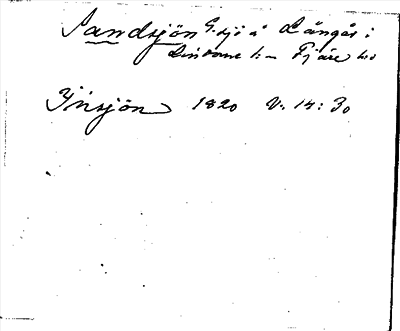 Sandsjön G. sjö å Långås i
Lindome s:n Fjäre hd
Ynsjön 1820 V: 14: 30